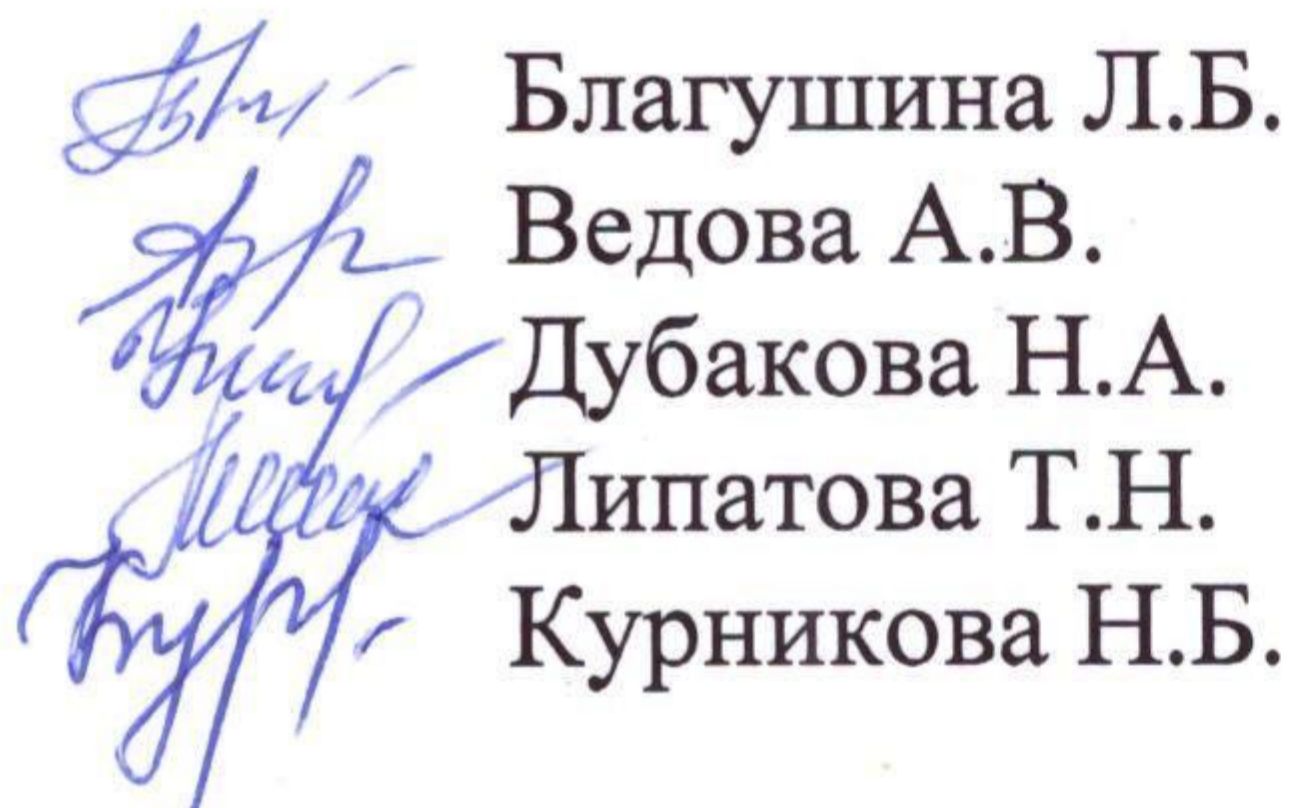 Благушина Л.Б.
Ведова А.В.
Дубакова Н.А.
Липатова Т.Н.
Курникова Н.Б.